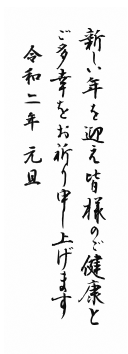 新しい年を迎え皆様のご健康と
ご多幸をお祈り申し上げます
令和二年 元旦